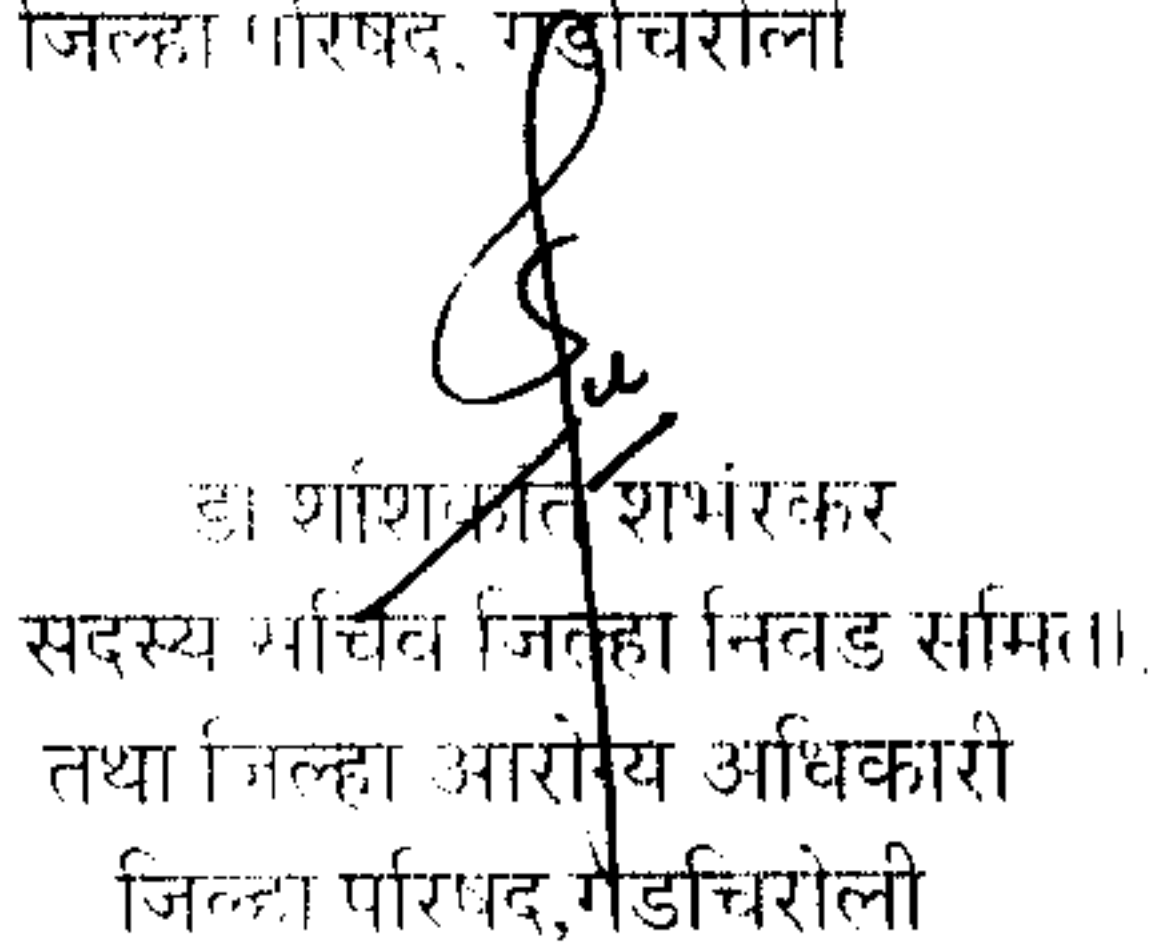 जिल्हा परिषद. गडचिरोली
डा शशिकांत शंभरकर
सदस्य सचिव जिल्हा निवड समिती.
तथा जिल्हा आरोग्य अधिकारी
जिल्हा परिषद,गडचिरोली